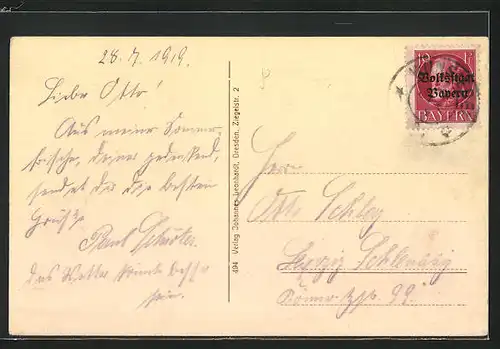 28. 7. 1919.
Lieber Otto!
Aus meiner Sommer-
frische, deiner gedenkend,
sendet dir die besten
Grüße
Paul Schröter.
Das Wetter könnte besser
sein.
494 Verlag Johannes Leonhardt, Dresden, Ziegelstr. 2
10 P
Volksstaat
Bayern
BAYERN
Herrn
Otto Schley
Leipzig Schleussig
Könneritzstr. 99.